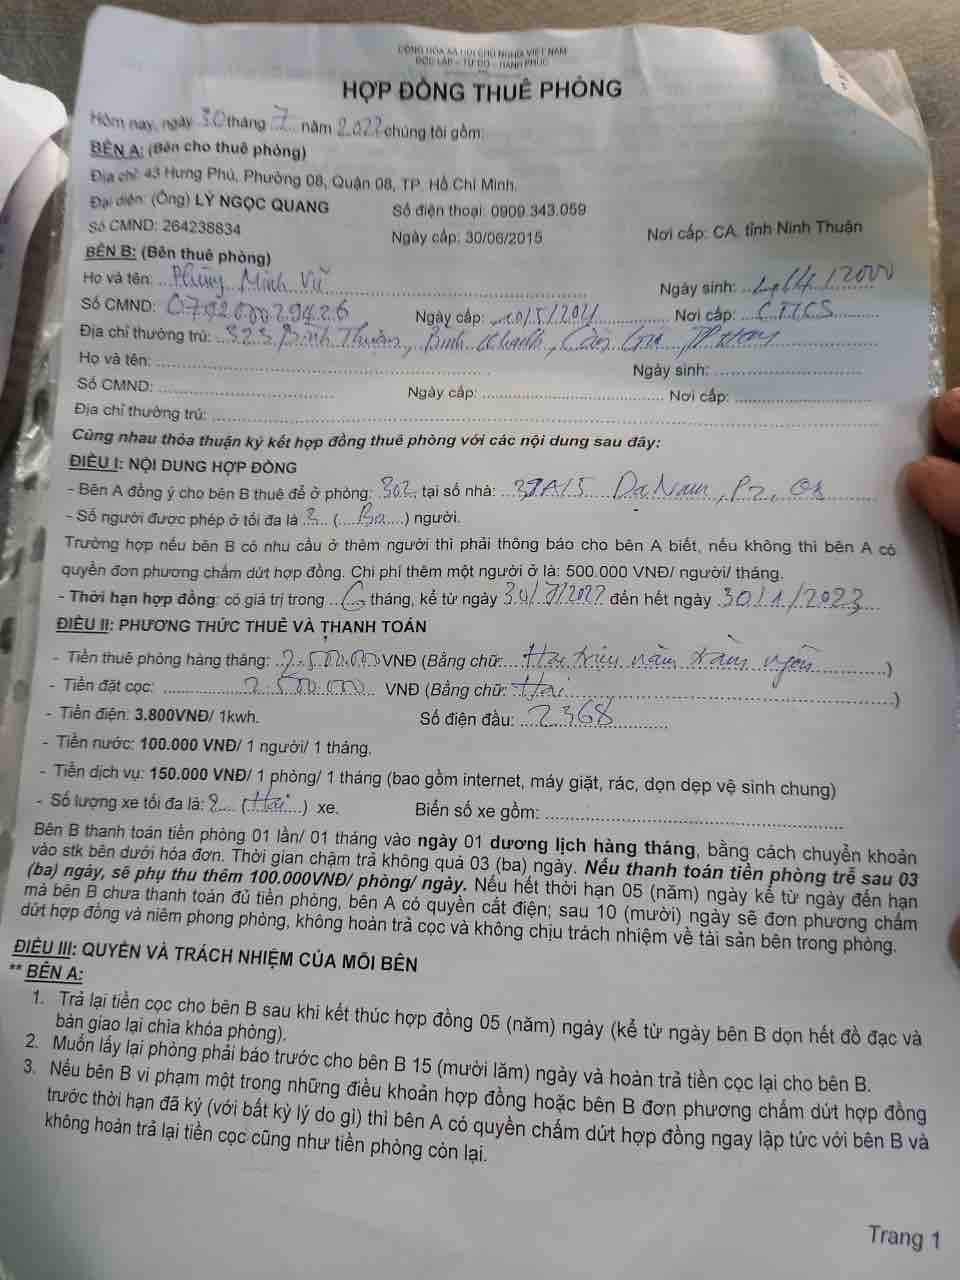 CỘNG HÒA XÃ HỘI CHỦ NGHĨA VIỆT NAM
ĐỘC LẬP - TỰ DO - HẠNH PHÚC
HỢP ĐỒNG THUÊ PHÒNG
Hôm nay, ngày 30 tháng 7 năm 2022 chúng tôi gồm:
BÊN A: (Bên cho thuê phòng)
Địa chỉ: 43 Hưng Phú, Phường 08, Quận 08, TP. Hồ Chí Minh.
Đại diện: (Ông) LÝ NGỌC QUANG Số điện thoại: 0909.343.059
Số CMND: 264238834 Ngày cấp: 30/06/2015 Nơi cấp: CA. tỉnh Ninh Thuận
BÊN B: (Bên thuê phòng)
Họ và tên: Phùng Minh Vũ Ngày sinh: /4/2000
Số CMND: 079200029426 Ngày cấp: 10/5/2021 Nơi cấp:
Địa chỉ thường trú: Bình Khánh, Cần Giờ, TP HCM
Họ và tên: Ngày sinh:
Số CMND: Ngày cấp: Nơi cấp:
Địa chỉ thường trú:
Cùng nhau thỏa thuận ký kết hợp đồng thuê phòng với các nội dung sau đây:
ĐIỀU I: NỘI DUNG HỢP ĐỒNG
- Bên A đồng ý cho bên B thuê để ở phòng: 302, tại số nhà: Dạ Nam, P2, Q8
- Số người được phép ở tối đa là 3 (Ba) người.
Trường hợp nếu bên B có nhu cầu ở thêm người thì phải thông báo cho bên A biết, nếu không thì bên A có
quyền đơn phương chấm dứt hợp đồng. Chi phí thêm một người ở là: 500.000 VNĐ/ người/ tháng.
- Thời hạn hợp đồng: có giá trị trong 6 tháng, kể từ ngày 30/7/2022 đến hết ngày 30/1/2023
ĐIỀU II: PHƯƠNG THỨC THUÊ VÀ THANH TOÁN
- Tiền thuê phòng hàng tháng: 2.500.000 VNĐ (Bằng chữ: Hai triệu năm trăm ngàn)
- Tiền đặt cọc: 2.500.000 VNĐ (Bằng chữ: Hai)
- Tiền điện: 3.800VNĐ/ 1kwh. Số điện đầu: 2368
- Tiền nước: 100.000 VNĐ/ 1 người/ 1 tháng.
- Tiền dịch vụ: 150.000 VNĐ/ 1 phòng/ 1 tháng (bao gồm internet, máy giặt, rác, dọn dẹp vệ sinh chung)
- Số lượng xe tối đa là: 2 (Hai) xe. Biển số xe gồm:
Bên B thanh toán tiền phòng 01 lần/ 01 tháng vào ngày 01 dương lịch hàng tháng, bằng cách chuyển khoản
vào stk bên dưới hóa đơn. Thời gian chậm trả không quá 03 (ba) ngày. Nếu thanh toán tiền phòng trễ sau 03
(ba) ngày, sẽ phụ thu thêm 100.000VNĐ/ phòng/ ngày. Nếu hết thời hạn 05 (năm) ngày kể từ ngày đến hạn
mà bên B chưa thanh toán đủ tiền phòng, bên A có quyền cắt điện; sau 10 (mười) ngày sẽ đơn phương chấm
dứt hợp đồng và niêm phong phòng, không hoàn trả cọc và không chịu trách nhiệm về tài sản bên trong phòng.
ĐIỀU III: QUYỀN VÀ TRÁCH NHIỆM CỦA MỖI BÊN
** BÊN A:
1. Trả lại tiền cọc cho bên B sau khi kết thúc hợp đồng 05 (năm) ngày (kể từ ngày bên B dọn hết đồ đạc và
bàn giao lại chìa khóa phòng).
2. Muốn lấy lại phòng phải báo trước cho bên B 15 (mười lăm) ngày và hoàn trả tiền cọc lại cho bên B.
3. Nếu bên B vi phạm một trong những điều khoản hợp đồng hoặc bên B đơn phương chấm dứt hợp đồng
trước thời hạn đã ký (với bất kỳ lý do gì) thì bên A có quyền chấm dứt hợp đồng ngay lập tức với bên B và
không hoàn trả lại tiền cọc cũng như tiền phòng còn lại.
Trang 1